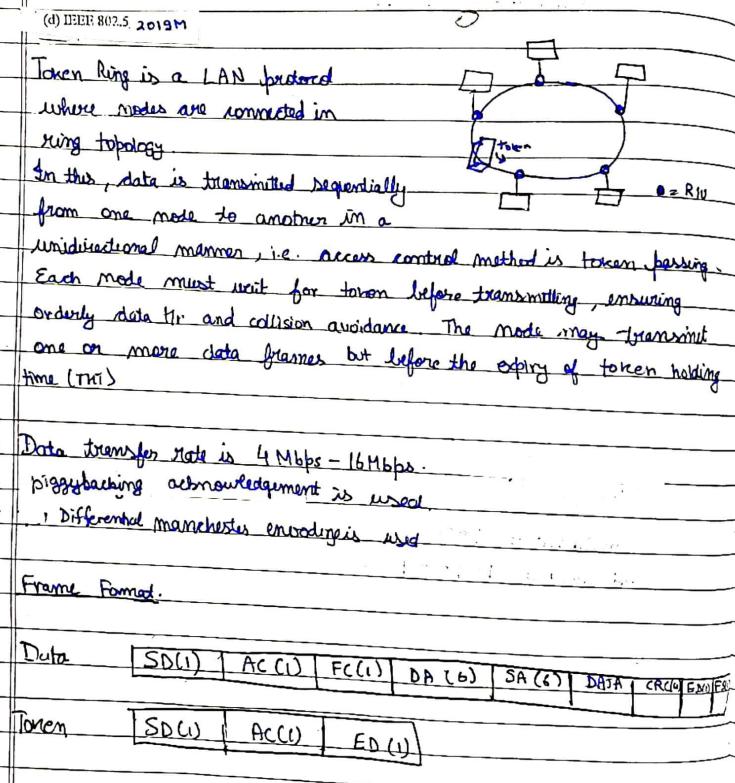 (d) IEEE 802.5, 2019M
Token Ring is a LAN protocol
where nodes are connected in
ring topology.
token
In this, data is transmitted sequentially
= RIU
from one node to another in a
unidirectional manner, i.e. access control method is token passing.
Each node must wait for token before transmitting, ensuring
orderly data tfr and collision avoidance. The node may transmit
one or more data frames but before the expiry of token holding
time (THT)
Data transfer rate is 4 Mbps - 16Mbps.
piggybacking acknowledgement is used.
, Differential manchester encoding is used
Frame Format.
Data SD(1) AC(1) FC(1) DA(6) SA(6) DATA CRC(4) ED(1) FS
Token SD(1) AC(1) ED(1)